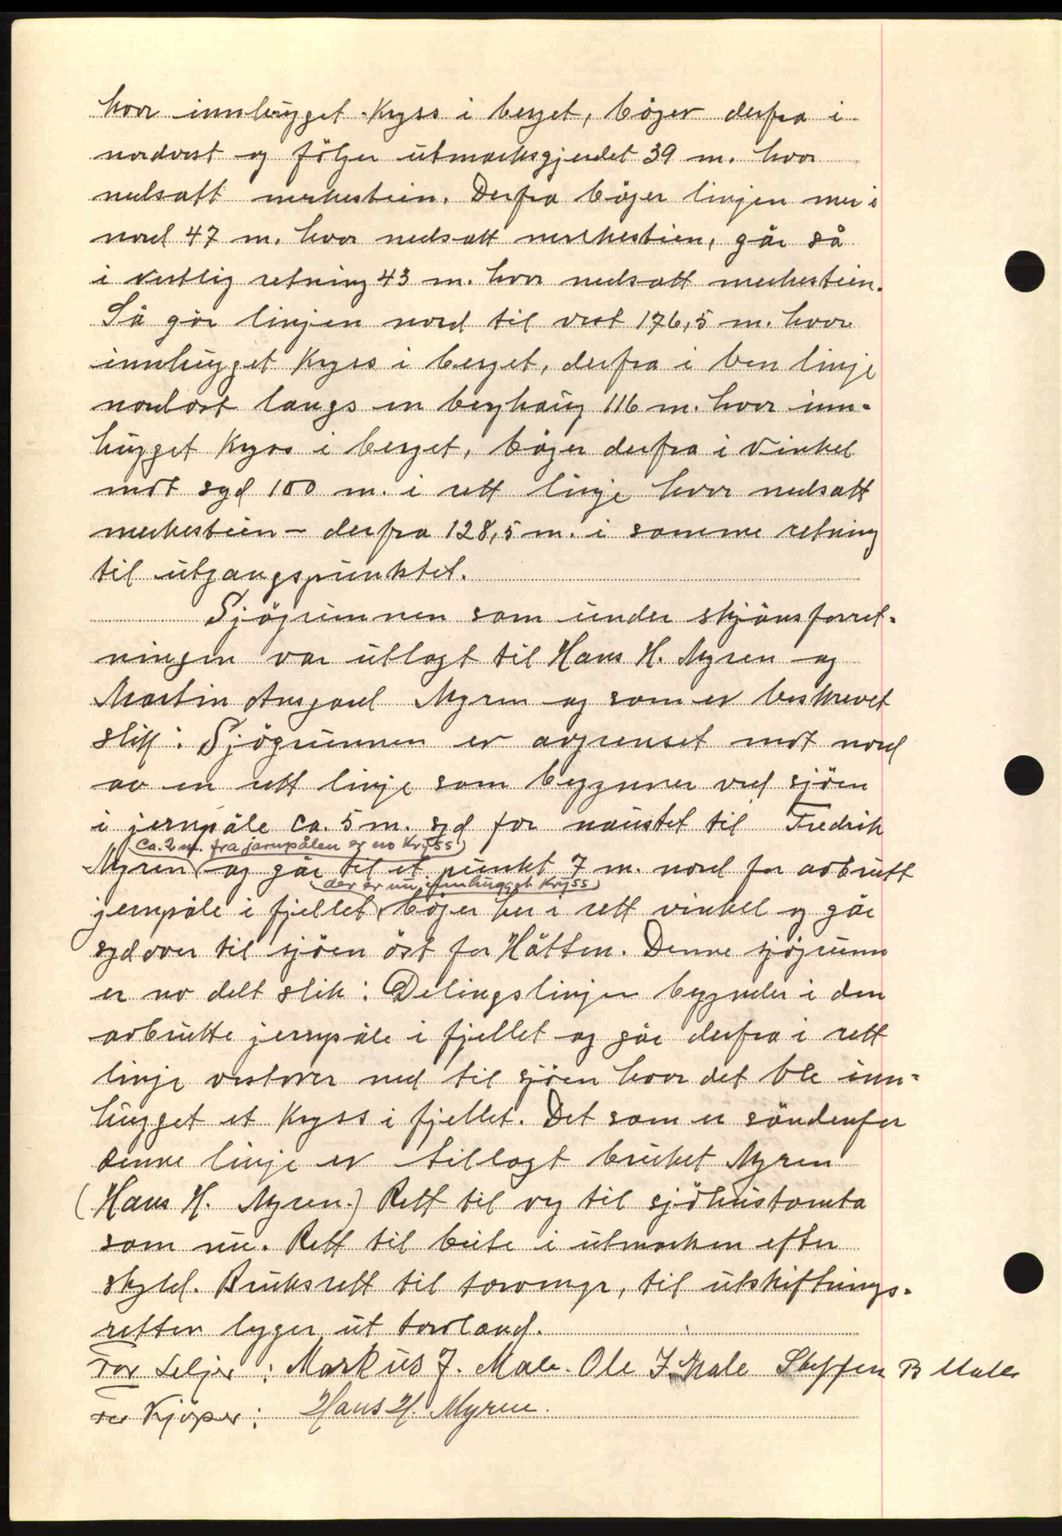 hvor innhugget kryss i berget, böyer derfra i
nordvest og fölger utmarksgjerdet 39 m. hvor
nedsatt merkestein. Derfra böyer linjen mer i
nord 47 m. hvor nedsatt merkestein, går så
i vestlig retning 43 m. hvor nedsatt merkestein.
Så går linjen nord til vest 176,5 m. hvor
innhugget kryss i berget, derfra i ben linje
nordost langs en berghaug 116 m. hvor inn-
hugget kryss i berget, böyer derfra i vinkel
mot syd 100 m. i rett linje hvor nedsatt
merkestein - derfra 128,5 m. i samme retning
til utgangspunktet.
Sjögrunnen som under skjönsforret-
ningen var utlagt til Hans H. Myren og
Martin Ansgard Myren og som er beskrevet
slik: Sjögrunnen er avgrenset mot nord
av en rett linje som begynner ved sjöen
i jernpåle ca. 5 m. syd for naustet til Fredrik
(ca. 2 m. fra jernpålen er no kryss)
Myren og går til et punkt 7 m. nord for avbrutt
(der er nu innhugget kryss)
jernpåle i fjellet, böyer her i rett vinkel og går
sydover til sjöen öst for Håtten. Denne sjögrunn
er no delt slik: Delingslinjen begynder i den
avbrutte jernpåle i fjellet og går derfra i rett
linje vestover ned til sjöen hvor det ble inn-
hugget et kryss i fjellet. Det som er söndenfor
denne linje er tillagt bruket Myren
(Hans H. Myren.) Rett til veg til sjöhustomta
som nu. Rett til beite i utmarken efter
skyld. Bruksrett til torvmyr, til utskiftnings-
retten lyger ut torvland.
For Seljer: Markus J. Male. Ole J. Male Steffen B Male
For Kjöper: Hans H. Myren.